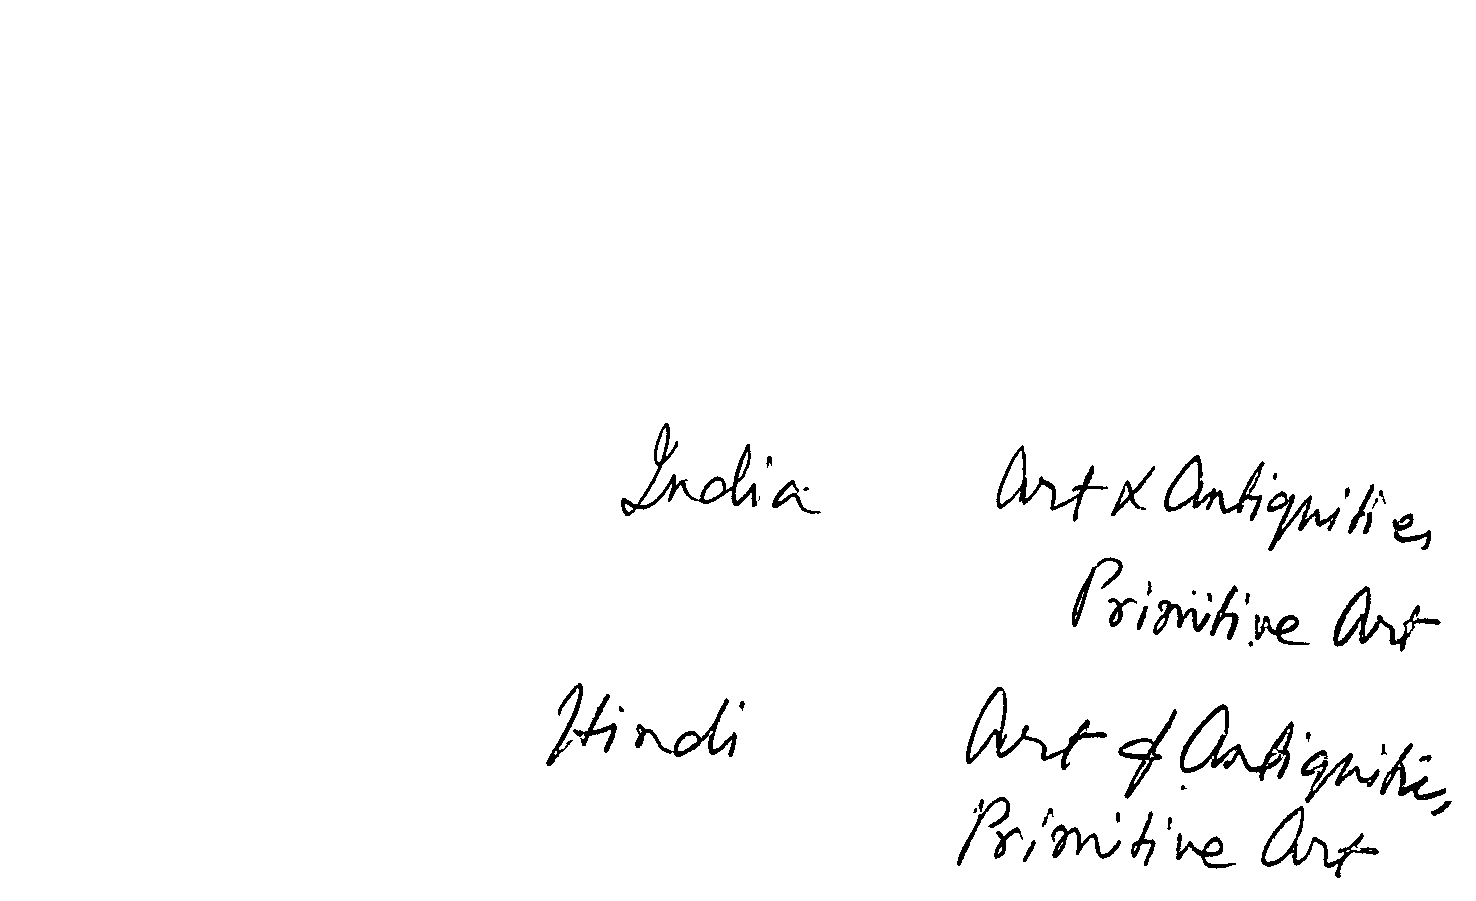 India Art & Antiquities,
Primitive Art
Hindi Art & Antiquities,
Primitive Art